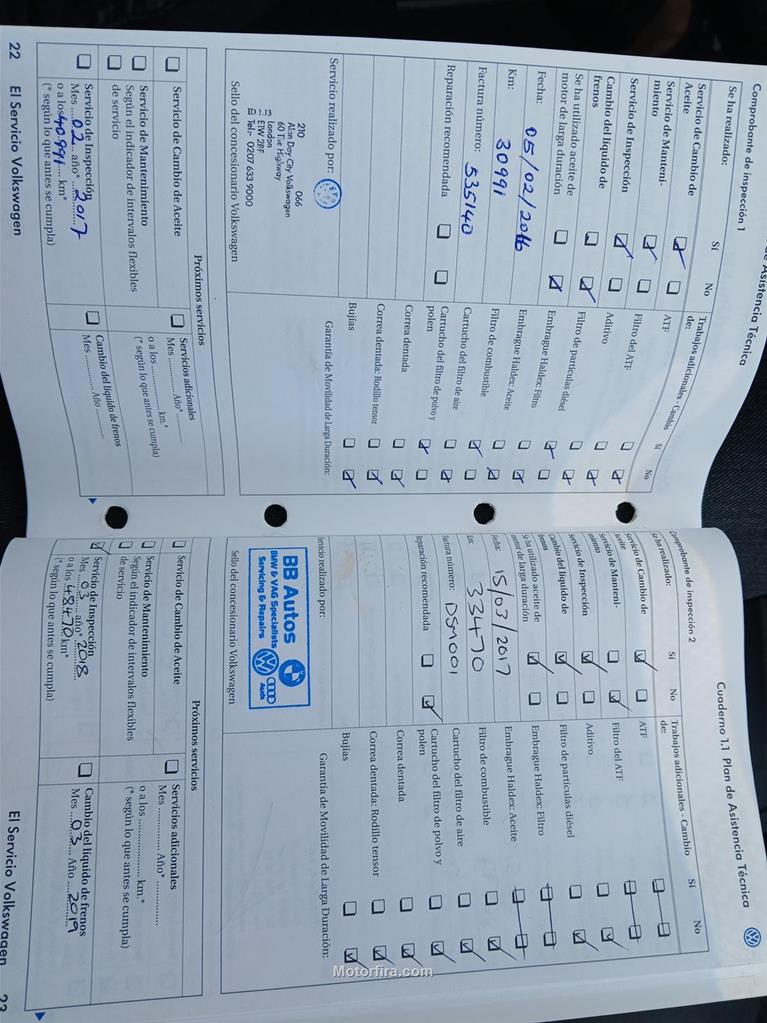 de Asistencia Técnica
Comprobante de inspección 1
Se ha realizado:
Sí
No
Servicio de Cambio de
Aceite
Servicio de Manteni-
miento
Servicio de Inspección
Cambio del líquido de
frenos
Se ha utilizado aceite de
motor de larga duración
Fecha: 05/02/2016
Km: 30991
Factura número: 535140
Reparación recomendada
Trabajos adicionales - Cambio
de:
Sí
No
ATF
Filtro del ATF
Aditivo
Filtro de partículas diésel
Embrague Haldex: Filtro
Embrague Haldex: Aceite
Filtro de combustible
Cartucho del filtro de aire
Cartucho del filtro de polvo y
polen
Correa dentada
Correa dentada: Rodillo tensor
Bujías
Servicio realizado por:
Garantía de Movilidad de Larga Duración:
210 066
Alan Day City Volkswagen
60 The Highway
London
E1W 2BF
Tel:- 0207 633 9000
Sello del concesionario Volkswagen
Próximos servicios
Servicio de Cambio de Aceite
Servicio de Mantenimiento
Según el indicador de intervalos flexibles
de servicio
Servicio de Inspección
Mes 02 año* 2017
o a los 40.991 km*
(* según lo que antes se cumpla)
Servicios adicionales
Mes Año*
o a los km.*
(* según lo que antes se cumpla)
Cambio del líquido de frenos
Mes Año
22 El Servicio Volkswagen
Cuaderno 1.1 Plan de Asistencia Técnica
Comprobante de inspección 2
Se ha realizado:
Sí
No
Servicio de Cambio de
aceite
Servicio de Manteni-
miento
Servicio de Inspección
Cambio del líquido de
frenos
Se ha utilizado aceite de
motor de larga duración
Fecha: 15/03/2017
Km: 33470
Factura número: DSM001
Reparación recomendada
Trabajos adicionales - Cambio
de:
Sí
No
ATF
Filtro del ATF
Aditivo
Filtro de partículas diésel
Embrague Haldex: Filtro
Embrague Haldex: Aceite
Filtro de combustible
Cartucho del filtro de aire
Cartucho del filtro de polvo y
polen
Correa dentada
Correa dentada: Rodillo tensor
Bujías
Servicio realizado por:
Garantía de Movilidad de Larga Duración:
BB Autos
BMW & VAG Specialists
Servicing & Repairs
Audi
Sello del concesionario Volkswagen
Próximos servicios
Servicio de Cambio de Aceite
Servicio de Mantenimiento
Según el indicador de intervalos flexibles
de servicio
Servicio de Inspección
Mes 03 año* 2018
o a los 48470 km*
(* según lo que antes se cumpla)
Servicios adicionales
Mes Año*
o a los km.*
(* según lo que antes se cumpla)
Cambio del líquido de frenos
Mes 03 Año 2019
El Servicio Volkswagen 23
Motorfira.com